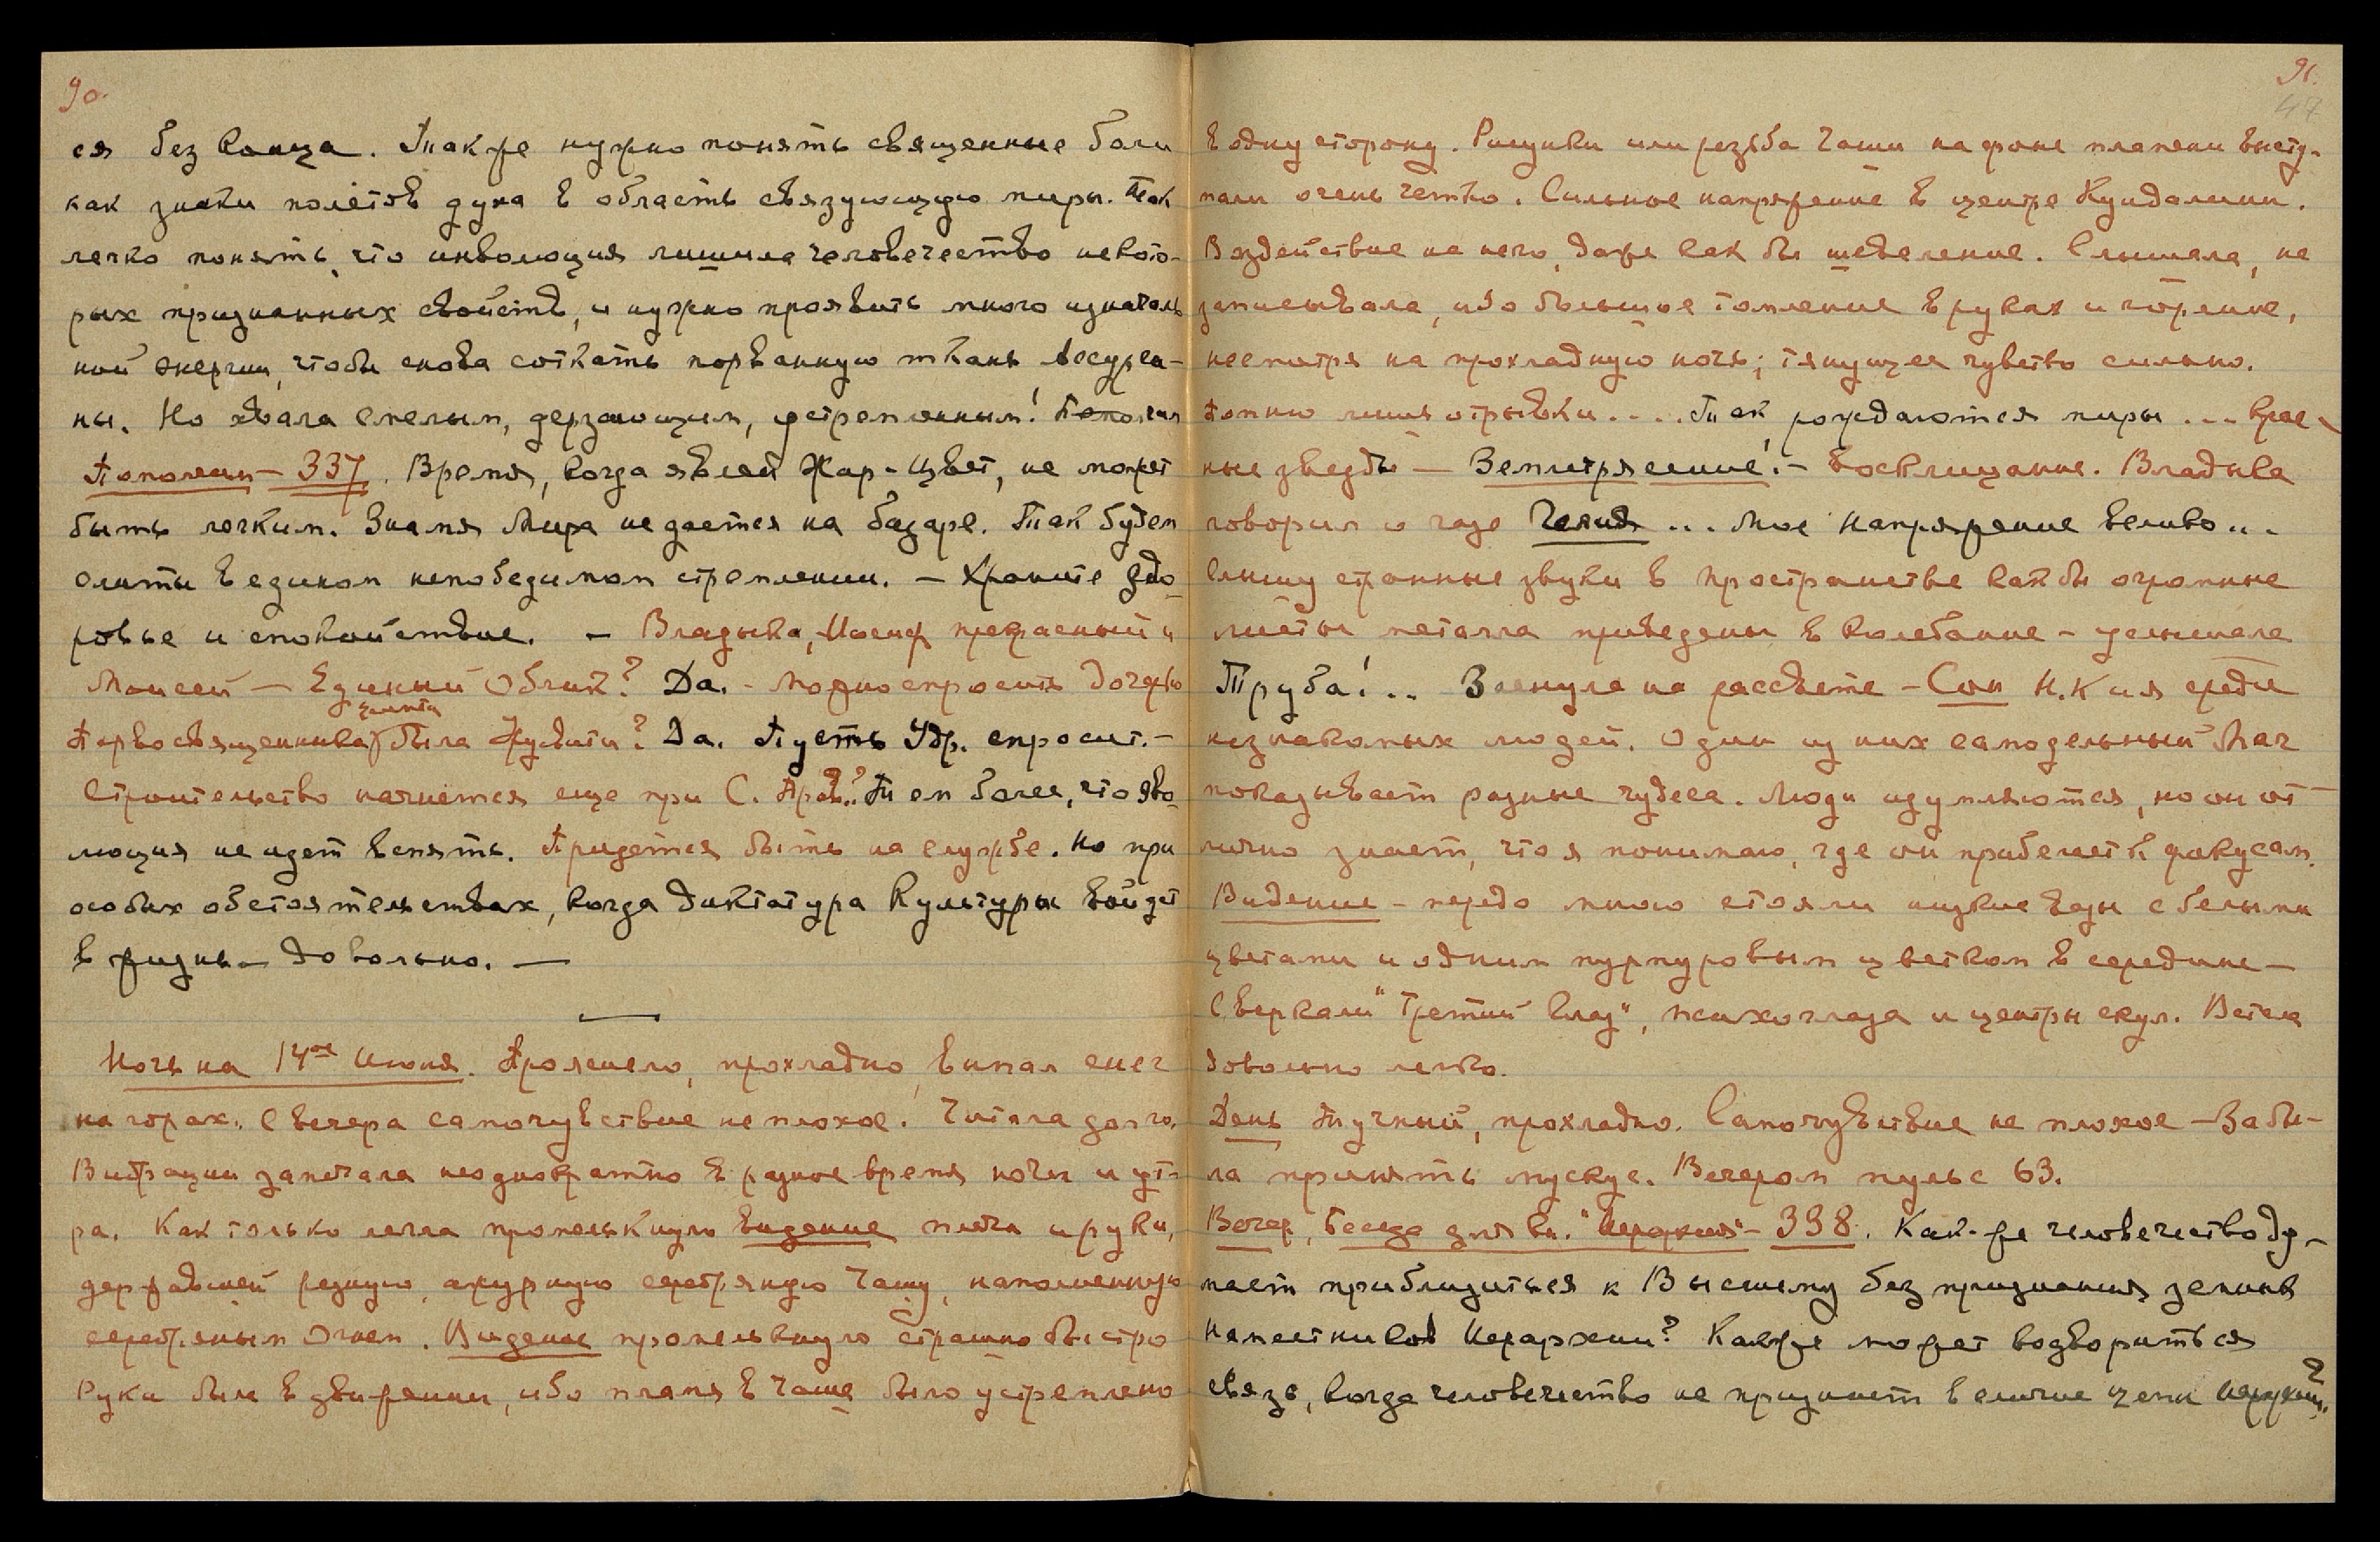 90.
ся без конца. Также нужно понять священные боли
как знаки полетов духа в область связующую миры. Так
легко понять, что инволюция лишила человечество некото-
рых признанных свойств, и нужно проявить много изначаль
ной энергии, чтобы снова соткать порванную ткань Асурга-
ны. Но хвала смелым, дерзающим, устремленным!
Пополнен — 337. Время, когда являем Жар-Цвет, не может
быть легким. Знамя Мира не дается на базаре. Так будем
слиты в едином непобедимом стремлении. — Храните здо-
ровье и спокойствие. — Владыка, Иосиф прекрасный и
Моисей — Единый Облик? Да. — Можно спросить дочерью
Первосвященника была Юдифь? Да. Пусть Удр. спросит. —
Строительство начнется еще при С. Прав.? Тем более, что эво-
люция не идет вспять. Придется быть на службе. Но при
особых обстоятельствах, когда диктатура Культуры войдет
в жизнь — довольно. —
Ночь на 14ое Июня. Прояснело, прохладно, выпал снег
на горах. С вечера самочувствие не плохое. Читала долго.
Вибрации замечала неоднократно в разное время ночи и ут-
ра. Как только легла промелькнуло видение плеча и руки,
державшей резную, ажурную серебряную Чашу, наполненную
серебряным Огнем. Видение промелькнуло страшно быстро
Руки была в движении, ибо пламя в Чаше было устремлено
91.
47
в одну сторону. Рисунки или резьба Чаши на фоне пламени высту-
пали очень четко. Сильное напряжение в центре Кундалини.
Воздействие на него, даже как бы шевеление. Слышала, не
записывала, ибо большое томление в руках и горение,
несмотря на прохладную ночь; тянущее чувство сильно.
Помню лишь отрывки.... Так рождаются миры ... Крас-
ные звезды — Землетрясение! — Восклицание. Владыка
говорил о газе ... Мое напряжение велико...
слышу странные звуки в пространстве как бы огромные
листы металла приведены в колебание — услышала
Труба!.. Заснула на рассвете — Сон Н.К и я среди
незнакомых людей. Один из них самодельный Маг
показывает разные чудеса. Люди изумляются, но он от-
лично знает, что я понимаю, где он прибегает к фокусам.
Видение — передо мною стояли низкие вазы с белыми
цветами и одним пурпуровым цветком в середине —
Сверкали "Третий Глаз", психоглаза и центры скул. Встала
довольно легко.
День Тучный, прохладно. Самочувствие не плохое — Забы-
ла принять мускус. Вечером пульс 63.
Вечер, Беседа для кн. "Иерархия" — 338. Как-же человечество ду-
мает приблизиться к Высшему без признания земных
наместников Иерархии? Как же может водвориться
связь, когда человечество не признает величие цепи Иерархии?